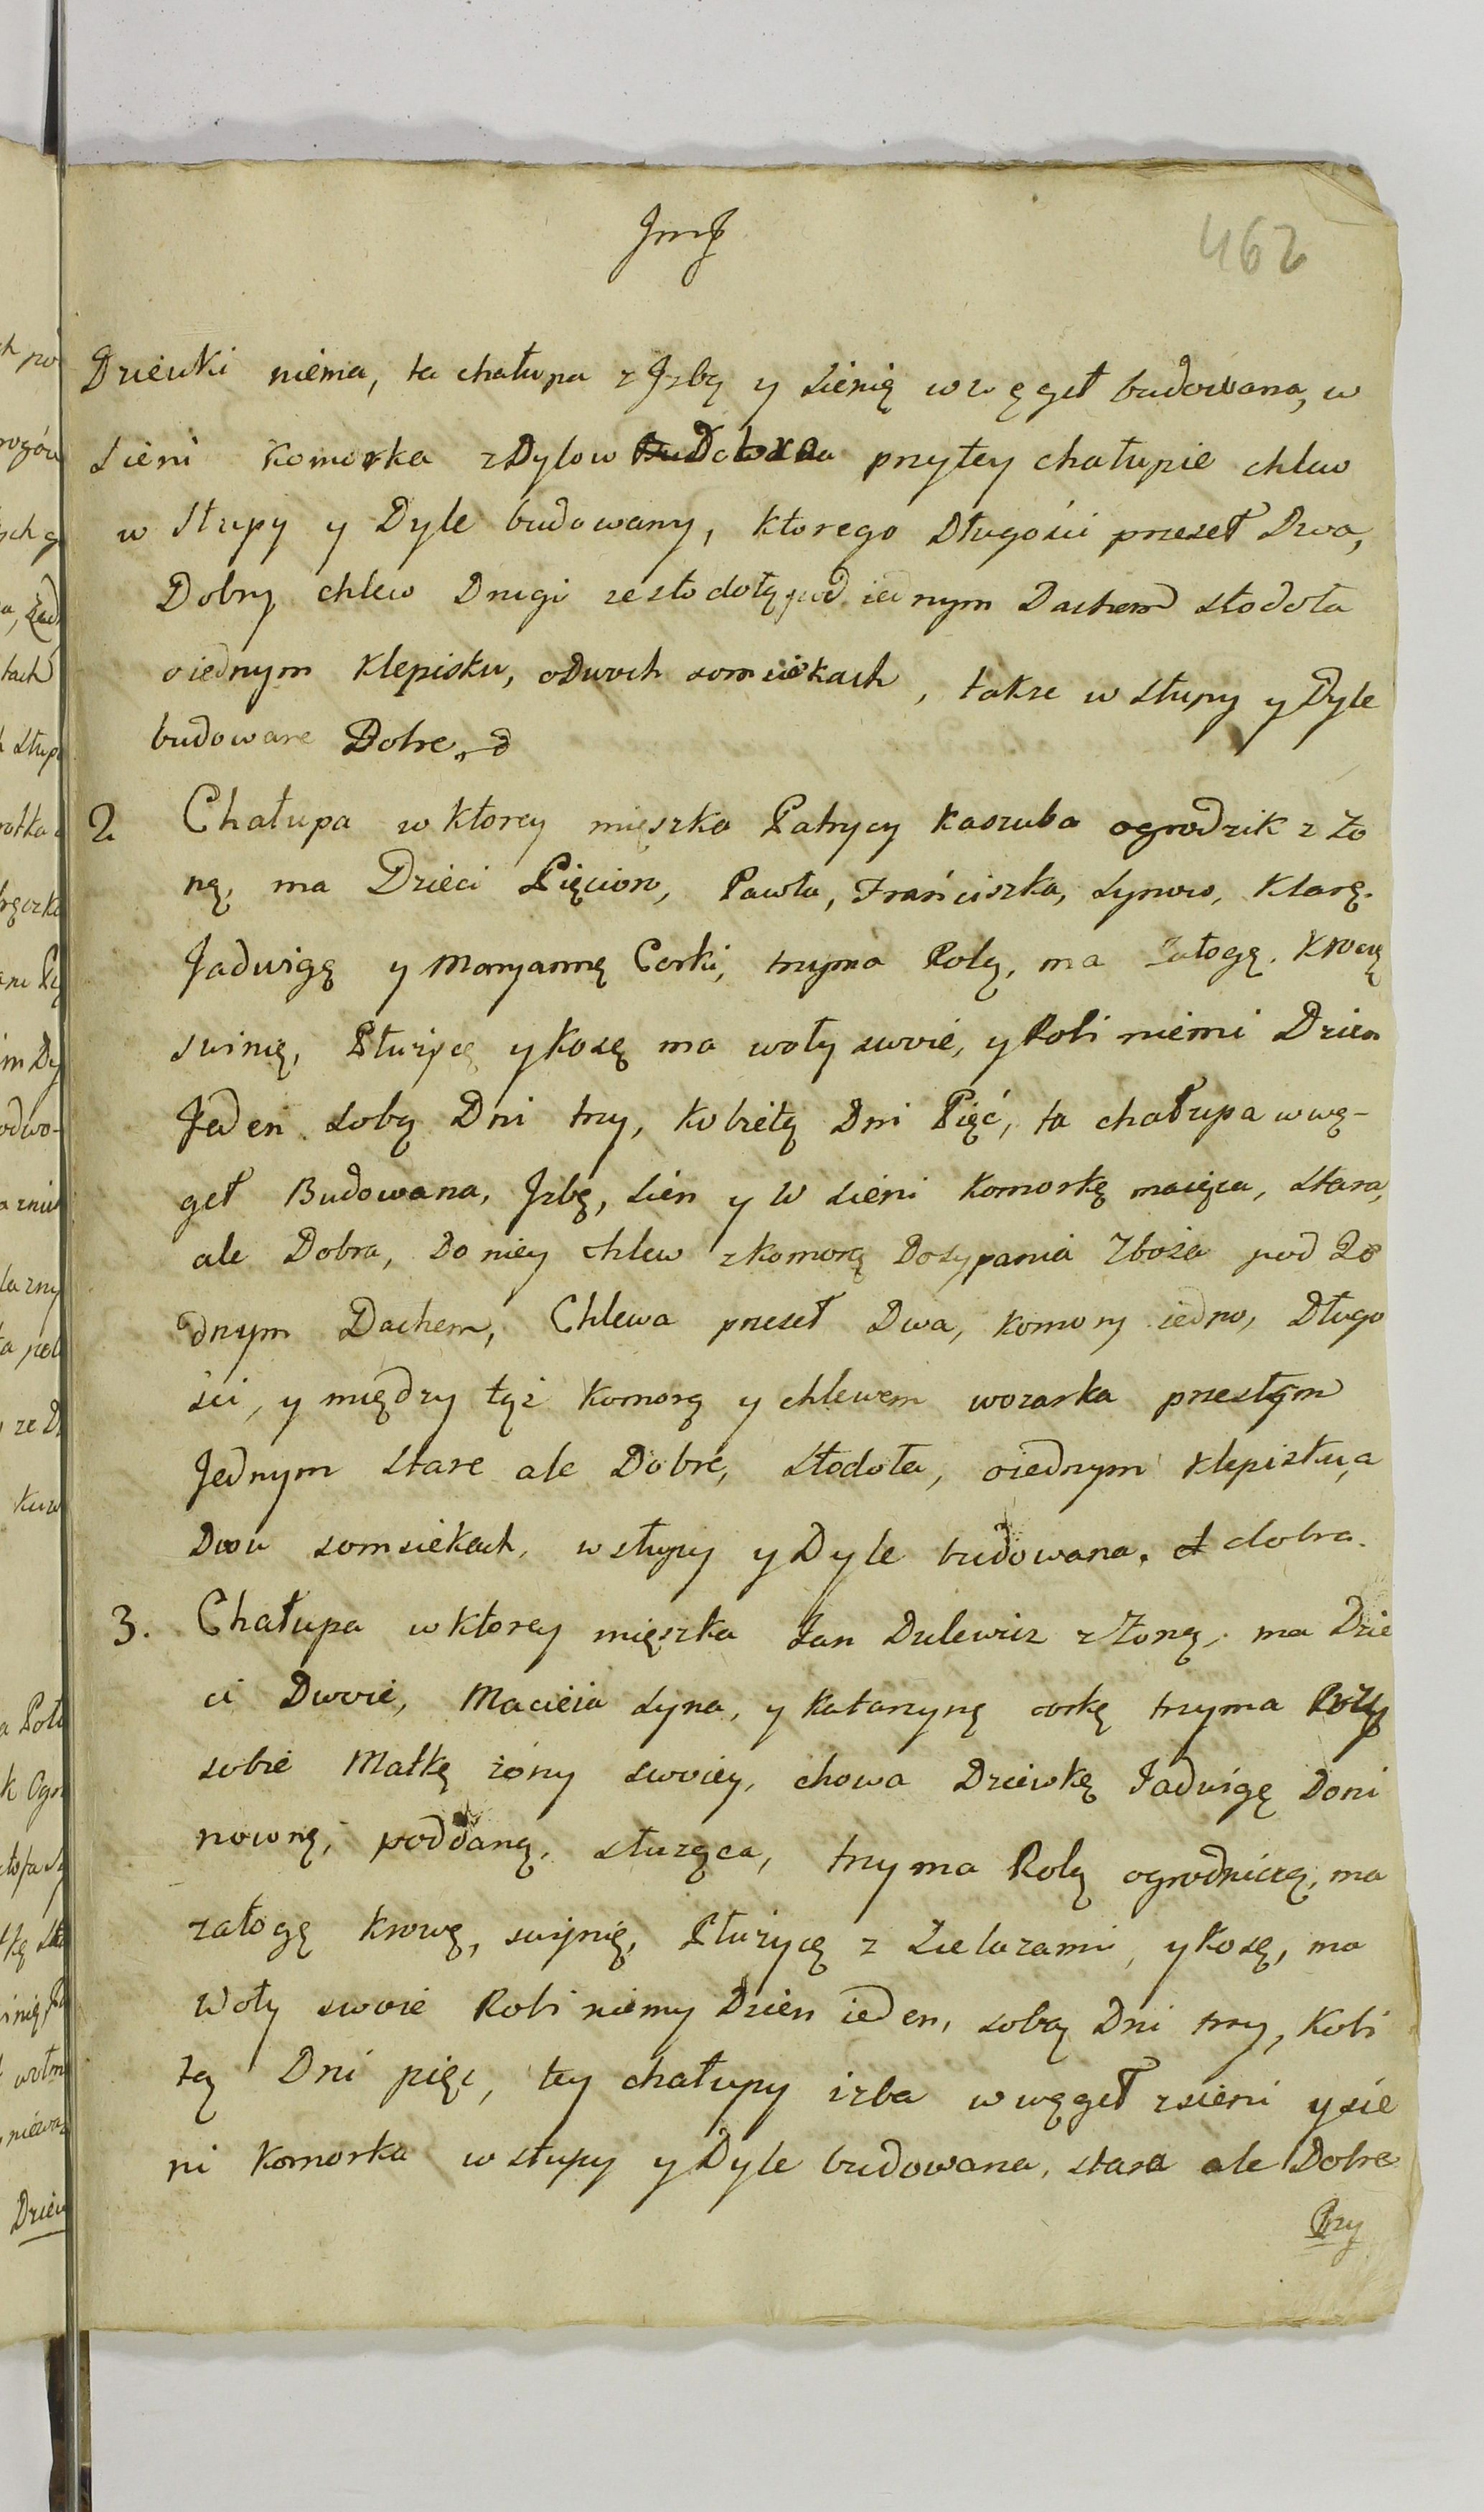 JmJ
462
Dziewki niema, ta chałupa z Jzbą y sienią wzwęgieł budowana, w
sieni komorka zDylow Dobra przytey chałupie chlew
w Słupy y Dyle budowany, ktorego Długości przeseł Dwa,
Dobry chlew Drugi zestodołą pod iednym Dachem stodoła
oiednym klepisku, oDwoch somsiekach, takze w słupy y Dyle
budowane Dobre
2 Chałupa wktorey mięszka Patrycy Kaszuba ogrodzik z żo
ną, ma Dzieci Pięcioro, Pawła, Frańciszka, synow, Klarę.
Jadwigę y Maryannę Corki, trzyma Rolą, ma załogę. Krowę
swinię, Płużycę ykosę ma woły swoie, yRobi niemi Dzien
Jeden sobą Dni trzy, kobietą Dni Pięć, ta chałupa wwę-
geł Budowana, Jzbę, sien y w sieni Komorkę maiąca, stara,
ale Dobra, Do niey chlew zkomorą Dosypania Zboża pod Je
dnym Dachem, Chlewa przeseł Dwa, komory iedno, Długo
ści, y między tąż komorą y chlewem wozarka przesłem
Jednym stare ale Dobre, stodoła, oiednym klepisku, a
Dwu somsiekach, wsłupy yDyle budowana. dobra.
3. Chałupa wktorey mięszka Jan Dulewicz zżoną, ma Dzie
ci Dwoie, Macieia syna, y Katarzynę corkę trzyma Przy
sobie Matkę żony swoiey, chowa Dziewkę Jadwigę Doni
nowną, poddaną, służąca, trzyma Rolą ogrodniczą, ma
załogę krowę, swynię, Płużycę z żelazami, ykosę, ma
Woły swoie Robi niemy Dzien ieden, sobą Dni trzy, kobi
tą Dni pięc, tey chałupy izba wwęgeł zsieni ysie
ni komorka wsłupy yDyle budowana, stara ale Dobre
Przy